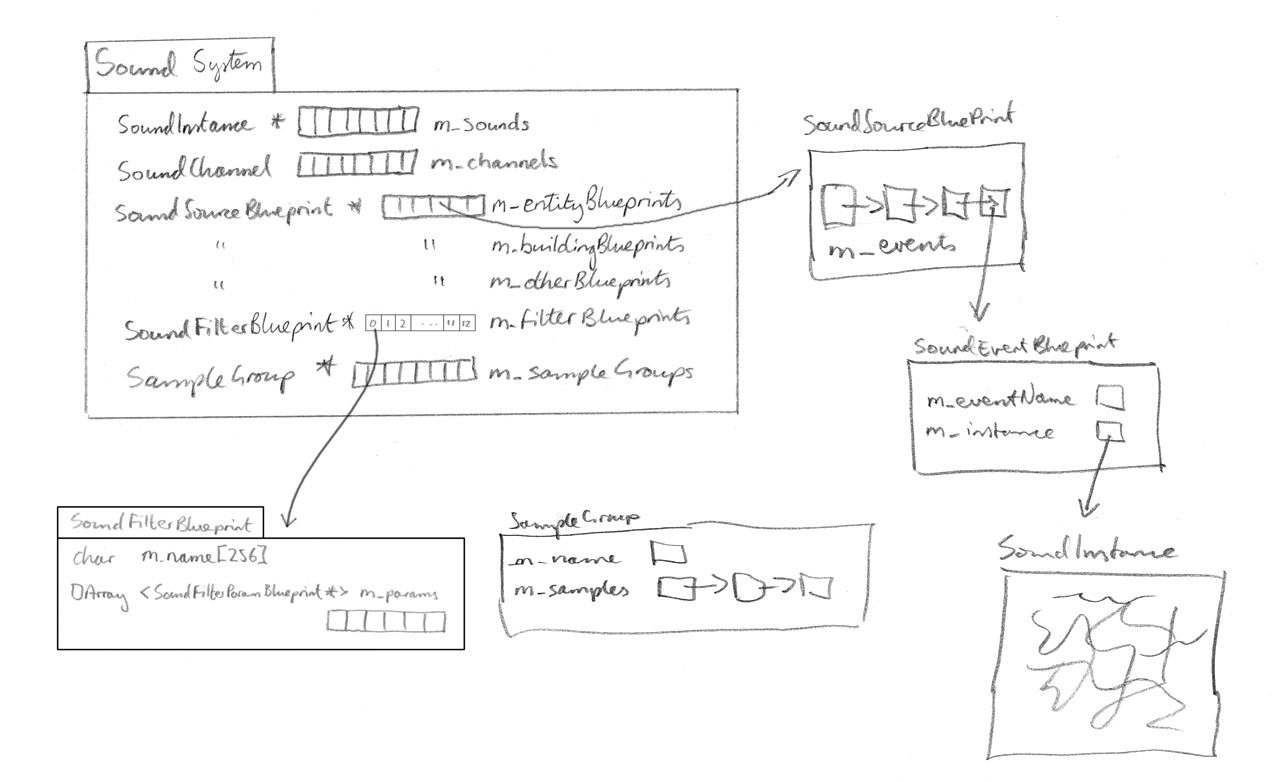 Sound System
SoundInstance * m_sounds
SoundChannel m_channels
SoundSourceBlueprint * m_entityBlueprints
" " m_buildingBlueprints
" " m_otherBlueprints
SoundFilterBlueprint * 0 1 2 ... 11 12 m_filterBlueprints
SampleGroup * m_sampleGroups
SoundSourceBluePrint
m_events
SoundEventBlueprint
m_eventName
m_instance
SoundFilterBlueprint
char m_name[256]
DArray <SoundFilterParamBlueprint*> m_params
SampleGroup
m_name
m_samples
SoundInstance